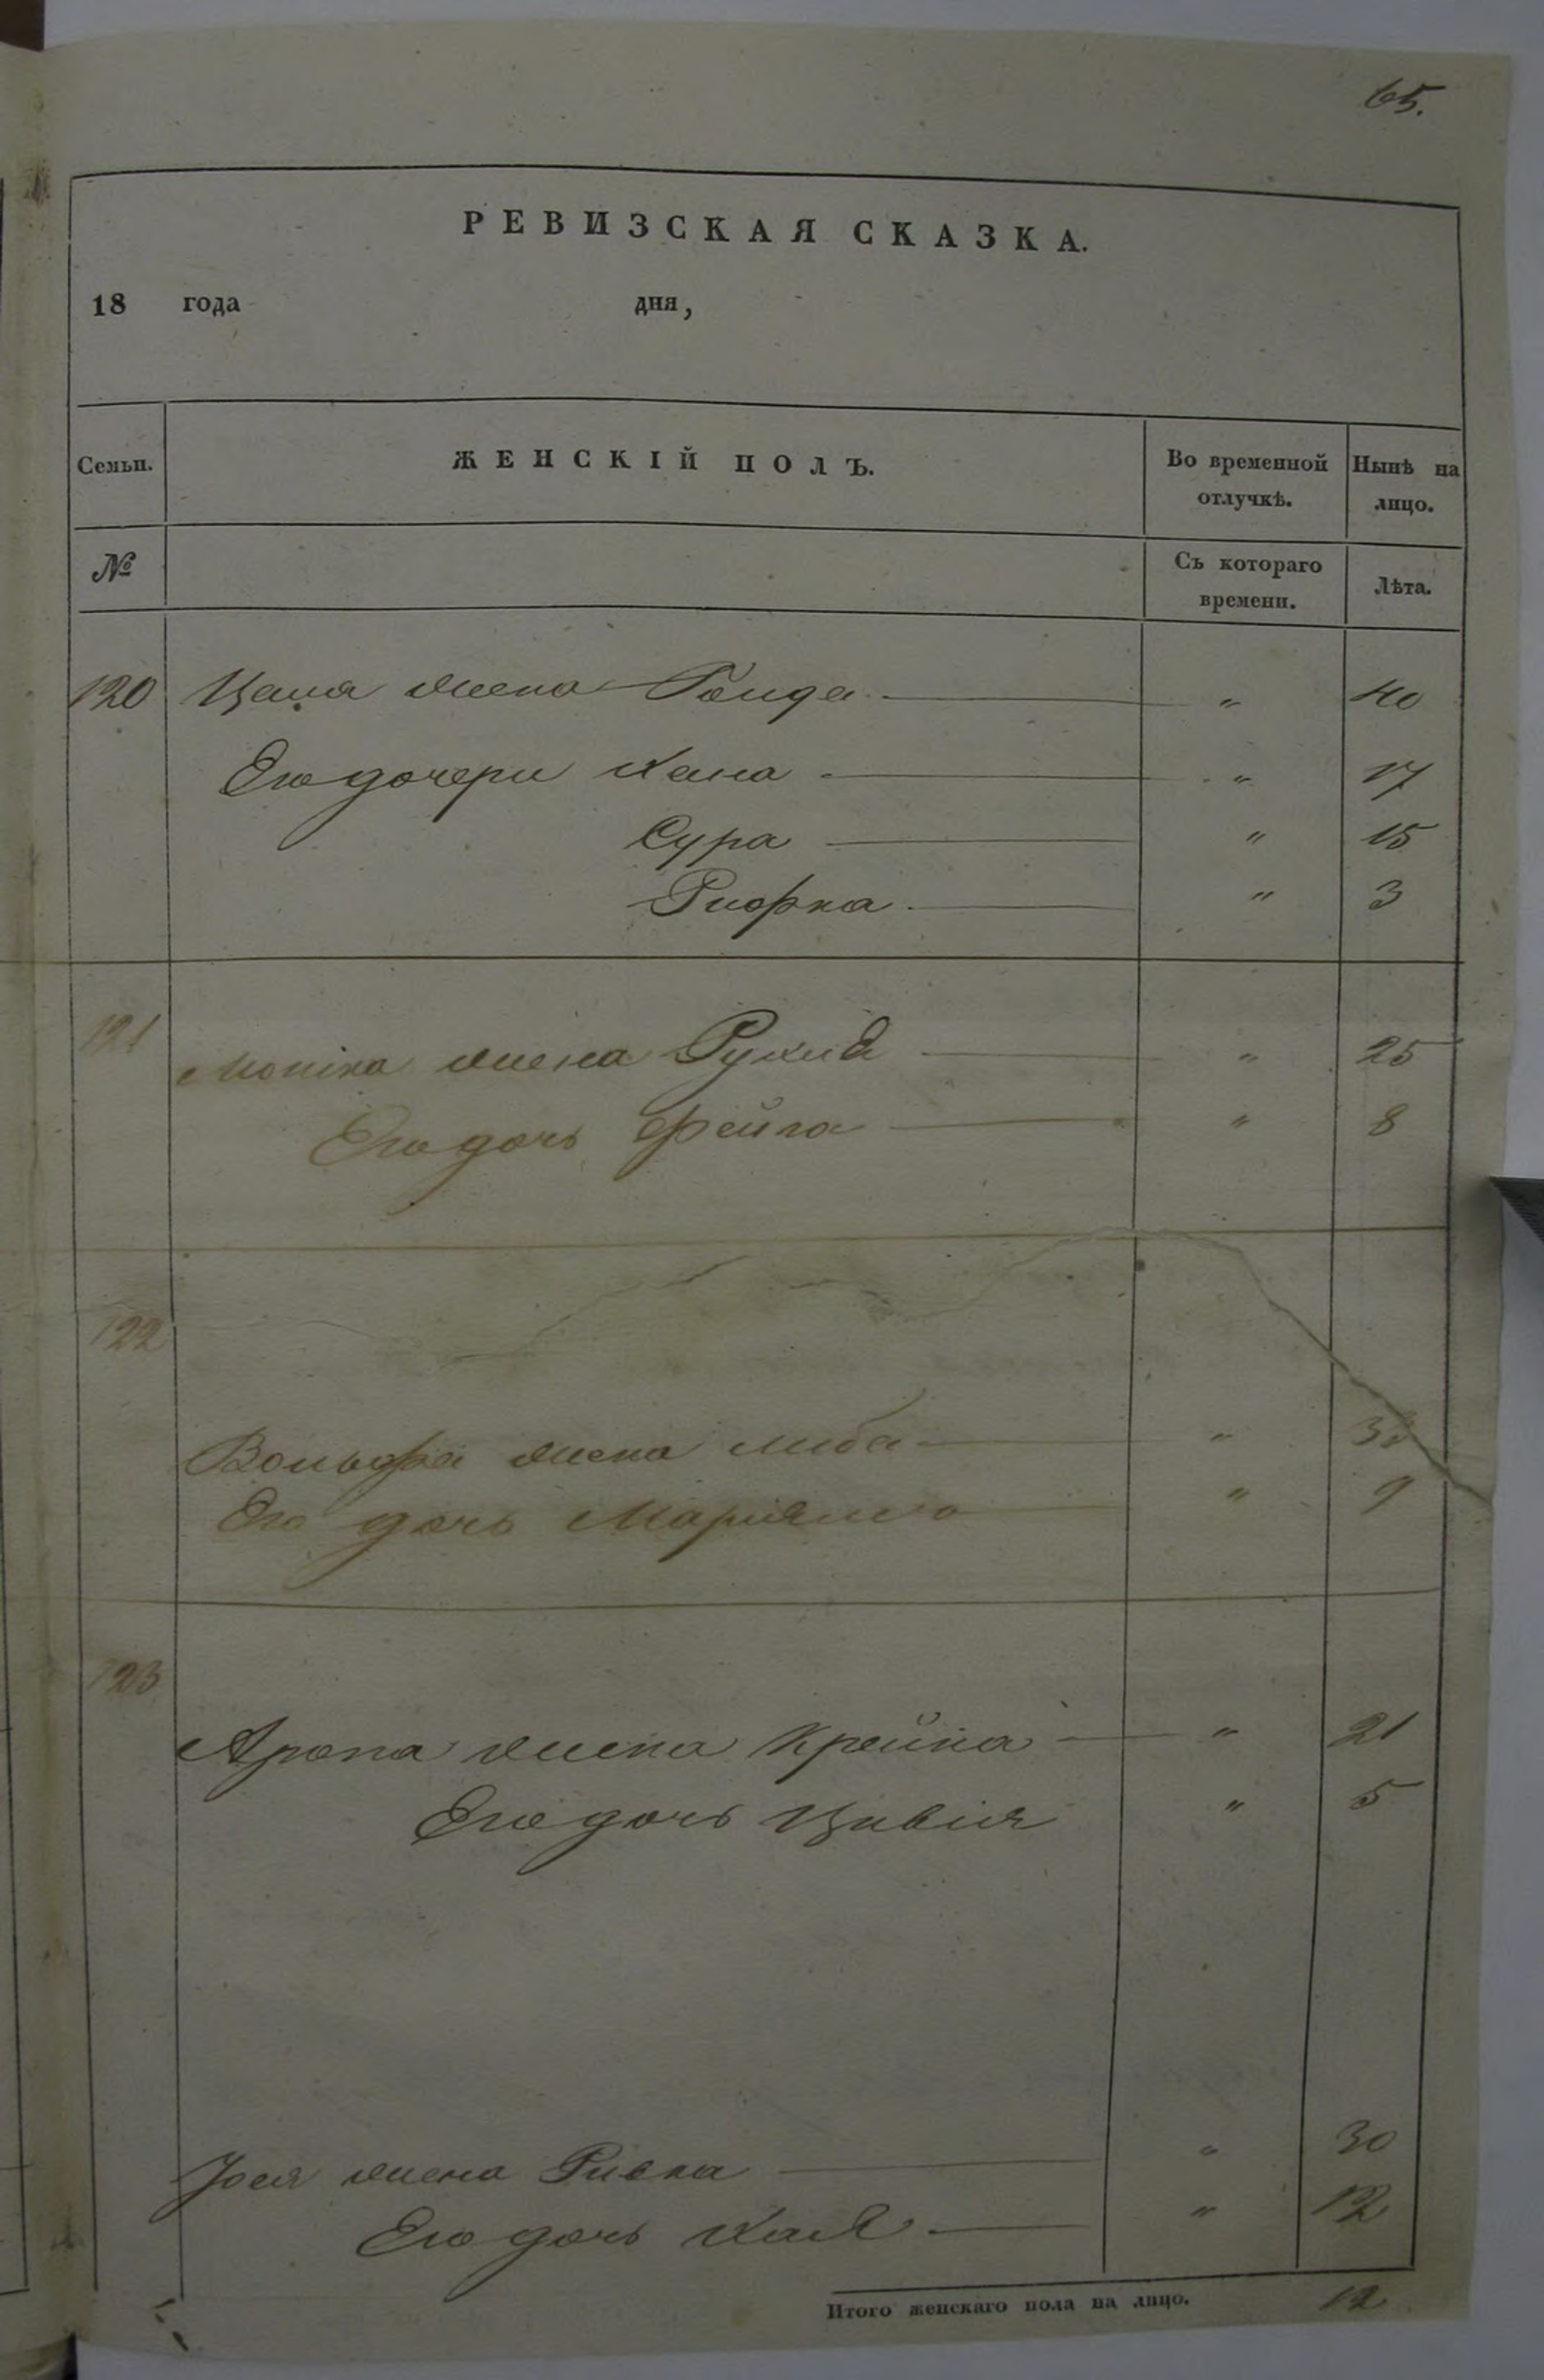 65.
РЕВИЗСКАЯ СКАЗКА.
18 года дня,
Семьи. ЖЕНСКІЙ ПОЛЪ. Во временной отлучкѣ. Нынѣ на лицо.
№ Съ котораго времени. Лѣта.
120 жена " 40
Его дочери Хана " 17
Сура " 15
Рифка " 3
121 жена " 25
Его дочь Фейга " 8
122
Вольфа жена Либа "
Его дочь Маріяма " 9
123
Арона жена Крейна " 21
Его дочь Цивія " 5
жена Ривка " 30
Его дочь Хая " 12
Итого женскаго пола на лицо. 12